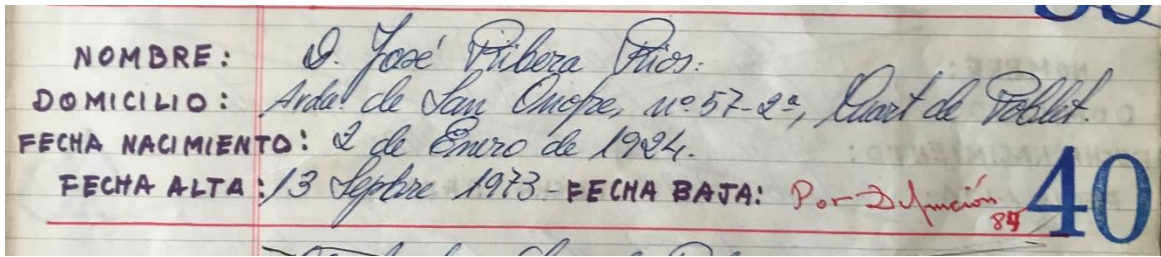 NOMBRE: D. José Ribera Rios.
DOMICILIO: Avda. de San Onofre, nº 57-2ª, Cuart de Poblet.
FECHA NACIMIENTO: 2 de Enero de 1924.
FECHA ALTA: 13 Sepbre 1973 - FECHA BAJA: Por Defunción 40
84